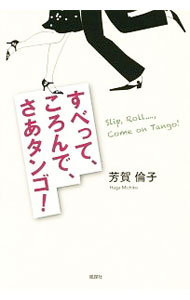 すべって、
ころんで、
さあタンゴ!
Slip, Roll....,
Come on Tango!
芳賀 倫子
Haga Michiko
風詠社